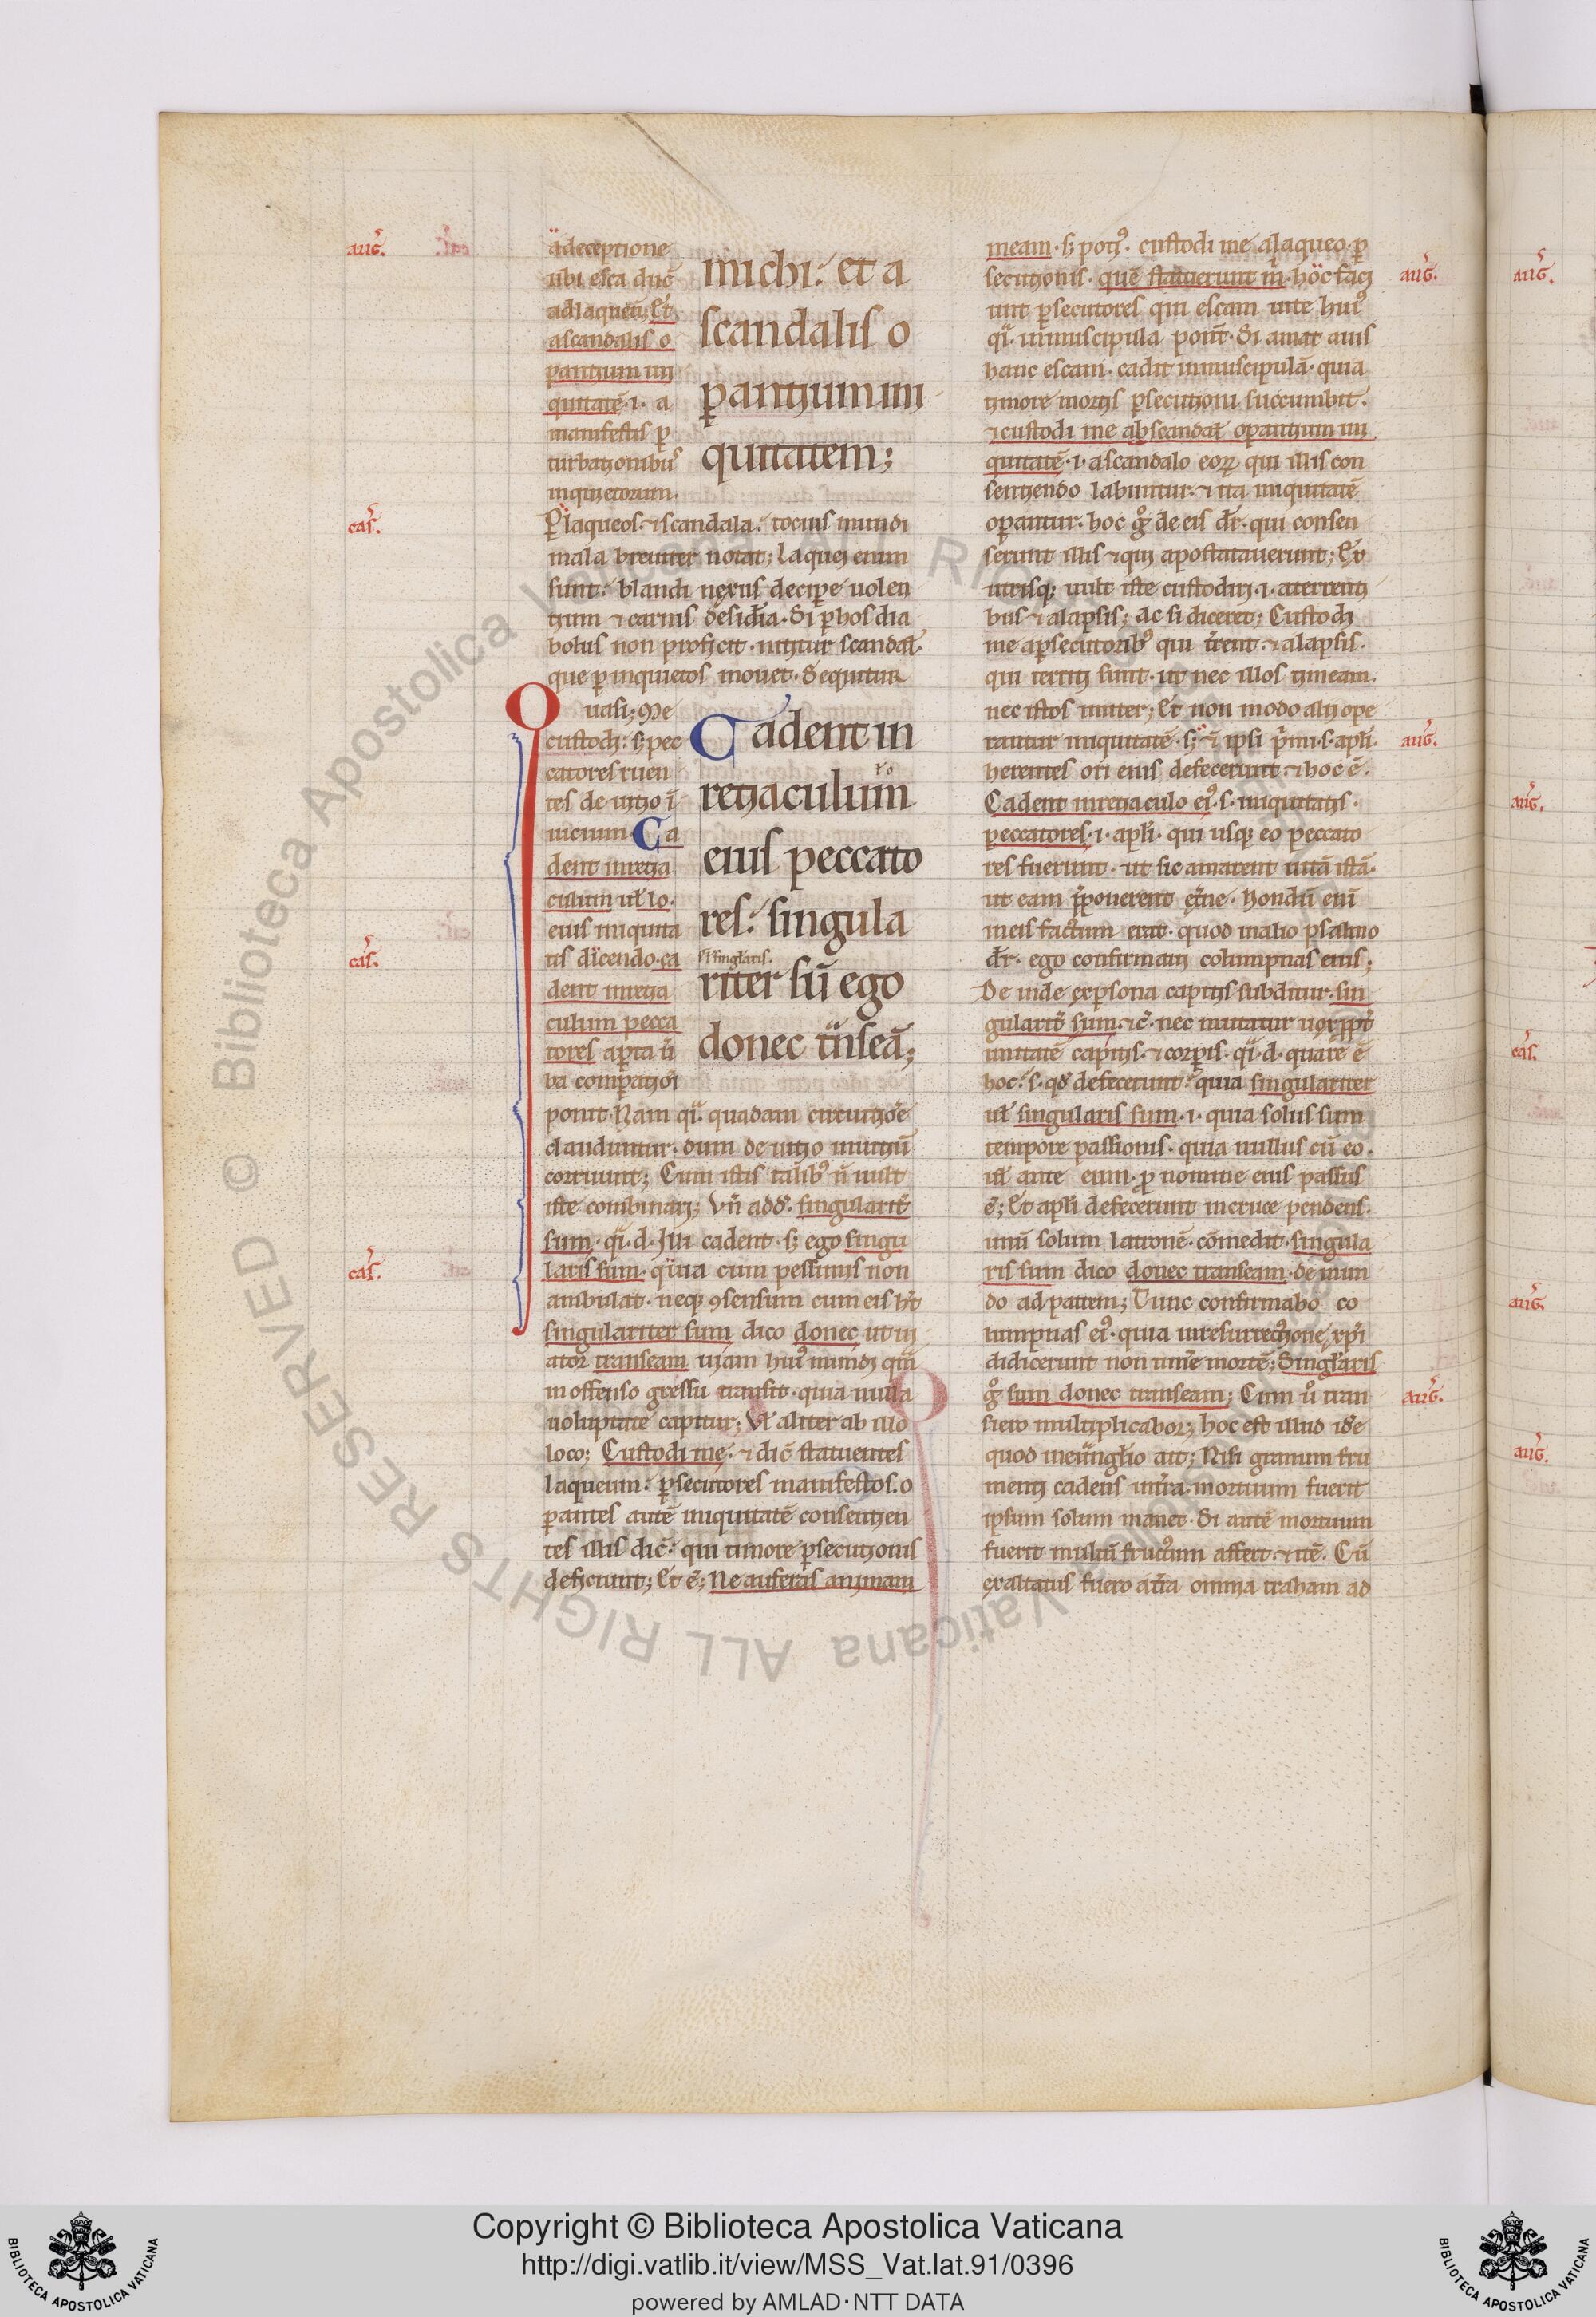 auḡ.
a deceptione
ubi esca duc̄
ad laqueū; Et
a scandalis o
ꝑantium ini
quitatē .i. a
manifestis ꝑ
turbationibꝰ
inquietorum.
michi: et a
scandalis o
ꝑantium ini
quitatem;
cas̄.
Ꝑ laqueos ⁊ scandala: tocius mundi
mala breuiter notat; laquei enim
sunt: blandi nexus decipe uolen
tium ⁊ carnis desid̄ia. Si ꝑ hos dia
bolus non proficit. nititur scandal̄.
que ꝑ inquietos mouet. Sequitur
Quasi; Me
custodi: s; pec
catores ruen
tes de uitio ī
uicium. Ca
dent in retia
culum uł lo.
eius iniquita
cas̄.
tis dicendo. ca
dent in retia
culum pecca
tores aperta ū
ba comparatiōi
Cadent in
ł o
retiaculum
eius peccato
res: singula
ł singłaris.
riter sū ego
donec tn̄seā;
ponit. Nam qi. quadam circuitiōe
clauduntur. dum de uitio in uitiū
corruunt; Cum istis talibꝰ ñ uult
iste combinari; Vn̄ add̄. singularit̄
sum. qi. d. Illi cadent. s; ego singu
cas̄.
laris sum. quia cum pessimis non
ambulat. neqꝫ ꝯsensum cum eis hēt
singulariter sum dico donec ut ui
ator transeam uiam huiꝰ mundi qm̄
in offenso gressu transit. quia nulla
uoluptate capitur; Vł aliter ab illo
loco; Custodi me. ⁊ dic̄ statuentes
laqueum: ꝑsecutores manifestos. o
ꝑantes autē iniquitatē consentien
tes illis dic̄: qui timore ꝑsecutionis
deficiunt; Et ē; Ne auferas animam
meam. s; potiꝰ. custodi me a laqueo ꝑ
secutionis. quē statuerunt m̄. hoc faci
auḡ.
unt ꝑsecutores qui escam uite huiꝰ
qi. in muscipula ponūt. Si amat auis
hanc escam. cadit in muscipulā. quia
timore mortis ꝑsecutioni succumbit.
⁊ custodi me ab scandał oꝑantium ini
quitatē .i. a scandalo eoꝝ qui illis con
sentiendo labuntur. ⁊ ita iniquitatē
operantur. hoc g̊ de eis dr̄. qui consen
serunt illis ⁊ qui apostatauerunt; Ex
utrisqꝫ uult iste custodiri .i. a terrenti
bus ⁊ a lapsis; ac si diceret; Custodi
me a ꝑsecutoribꝰ qui t̄rent. ⁊ a lapsis.
qui territi sunt. ut nec illos timeam.
nec istos imiter; Et non modo alij ope
rantur iniquitatē. s; ⁊ ipsi p̄mi. s. apłi.
auḡ.
herentes ori eius defecerunt. ⁊ hoc ē.
Cadent in retiaculo eiꝰ. s. iniquitatis.
peccatores .i. apłi. qui usqꝫ eo peccato
res fuerunt. ut sic amarent uitā istā.
ut eam p̄ponerent et̄ne. Nondū enī
meis factum erat. quod in alio psalmo
dr̄. ego confirmaui columpnas eius;
De inde ex persona capitis subditur. sin
gularit̄ sum. ⁊ c̄. nec mutatur uox ꝓpt̄
unitatē capitis. ⁊ corporis. qi. d. quare ē
hoc: s. qđ defecerunt: quia singulariter
uł singularis sum .i. quia solus sum
tempore passionis. quia nullus cū eo.
uł ante eum. ꝓ nomine eius passus
ē; Et apłi defecerunt in cruce pendens.
unū solum latronē. cōmedit. singula
ris sum dico donec transeam. de mun
do ad patrem; Tunc confirmabo co
lumpnas eiꝰ. quia in resurrectione xp̄i
didicerunt non tim̄e mortē; Singłaris
g̊ sum donec transeam; Cum ů tran
auḡ.
siero multiplicabor; hoc est illud id̄e
quod in euāngłio ait; Nisi granum fru
menti cadens in t̄ra. mortuum fuerit
ipsum solum manet. Si autē mortuum
fuerit multū fructum affert. ⁊ itē. Cū
exaltatus fuero a t̄ra omnia traham ad
auḡ.
auḡ.
cas̄.
auḡ
auḡ.
© Biblioteca Apostolica Vaticana ALL RIGHTS RESERVED
Copyright © Biblioteca Apostolica Vaticana
http://digi.vatlib.it/view/MSS_Vat.lat.91/0396
powered by AMLAD·NTT DATA
BIBLIOTECA APOSTOLICA VATICANA
BIBLIOTECA APOSTOLICA VATICANA